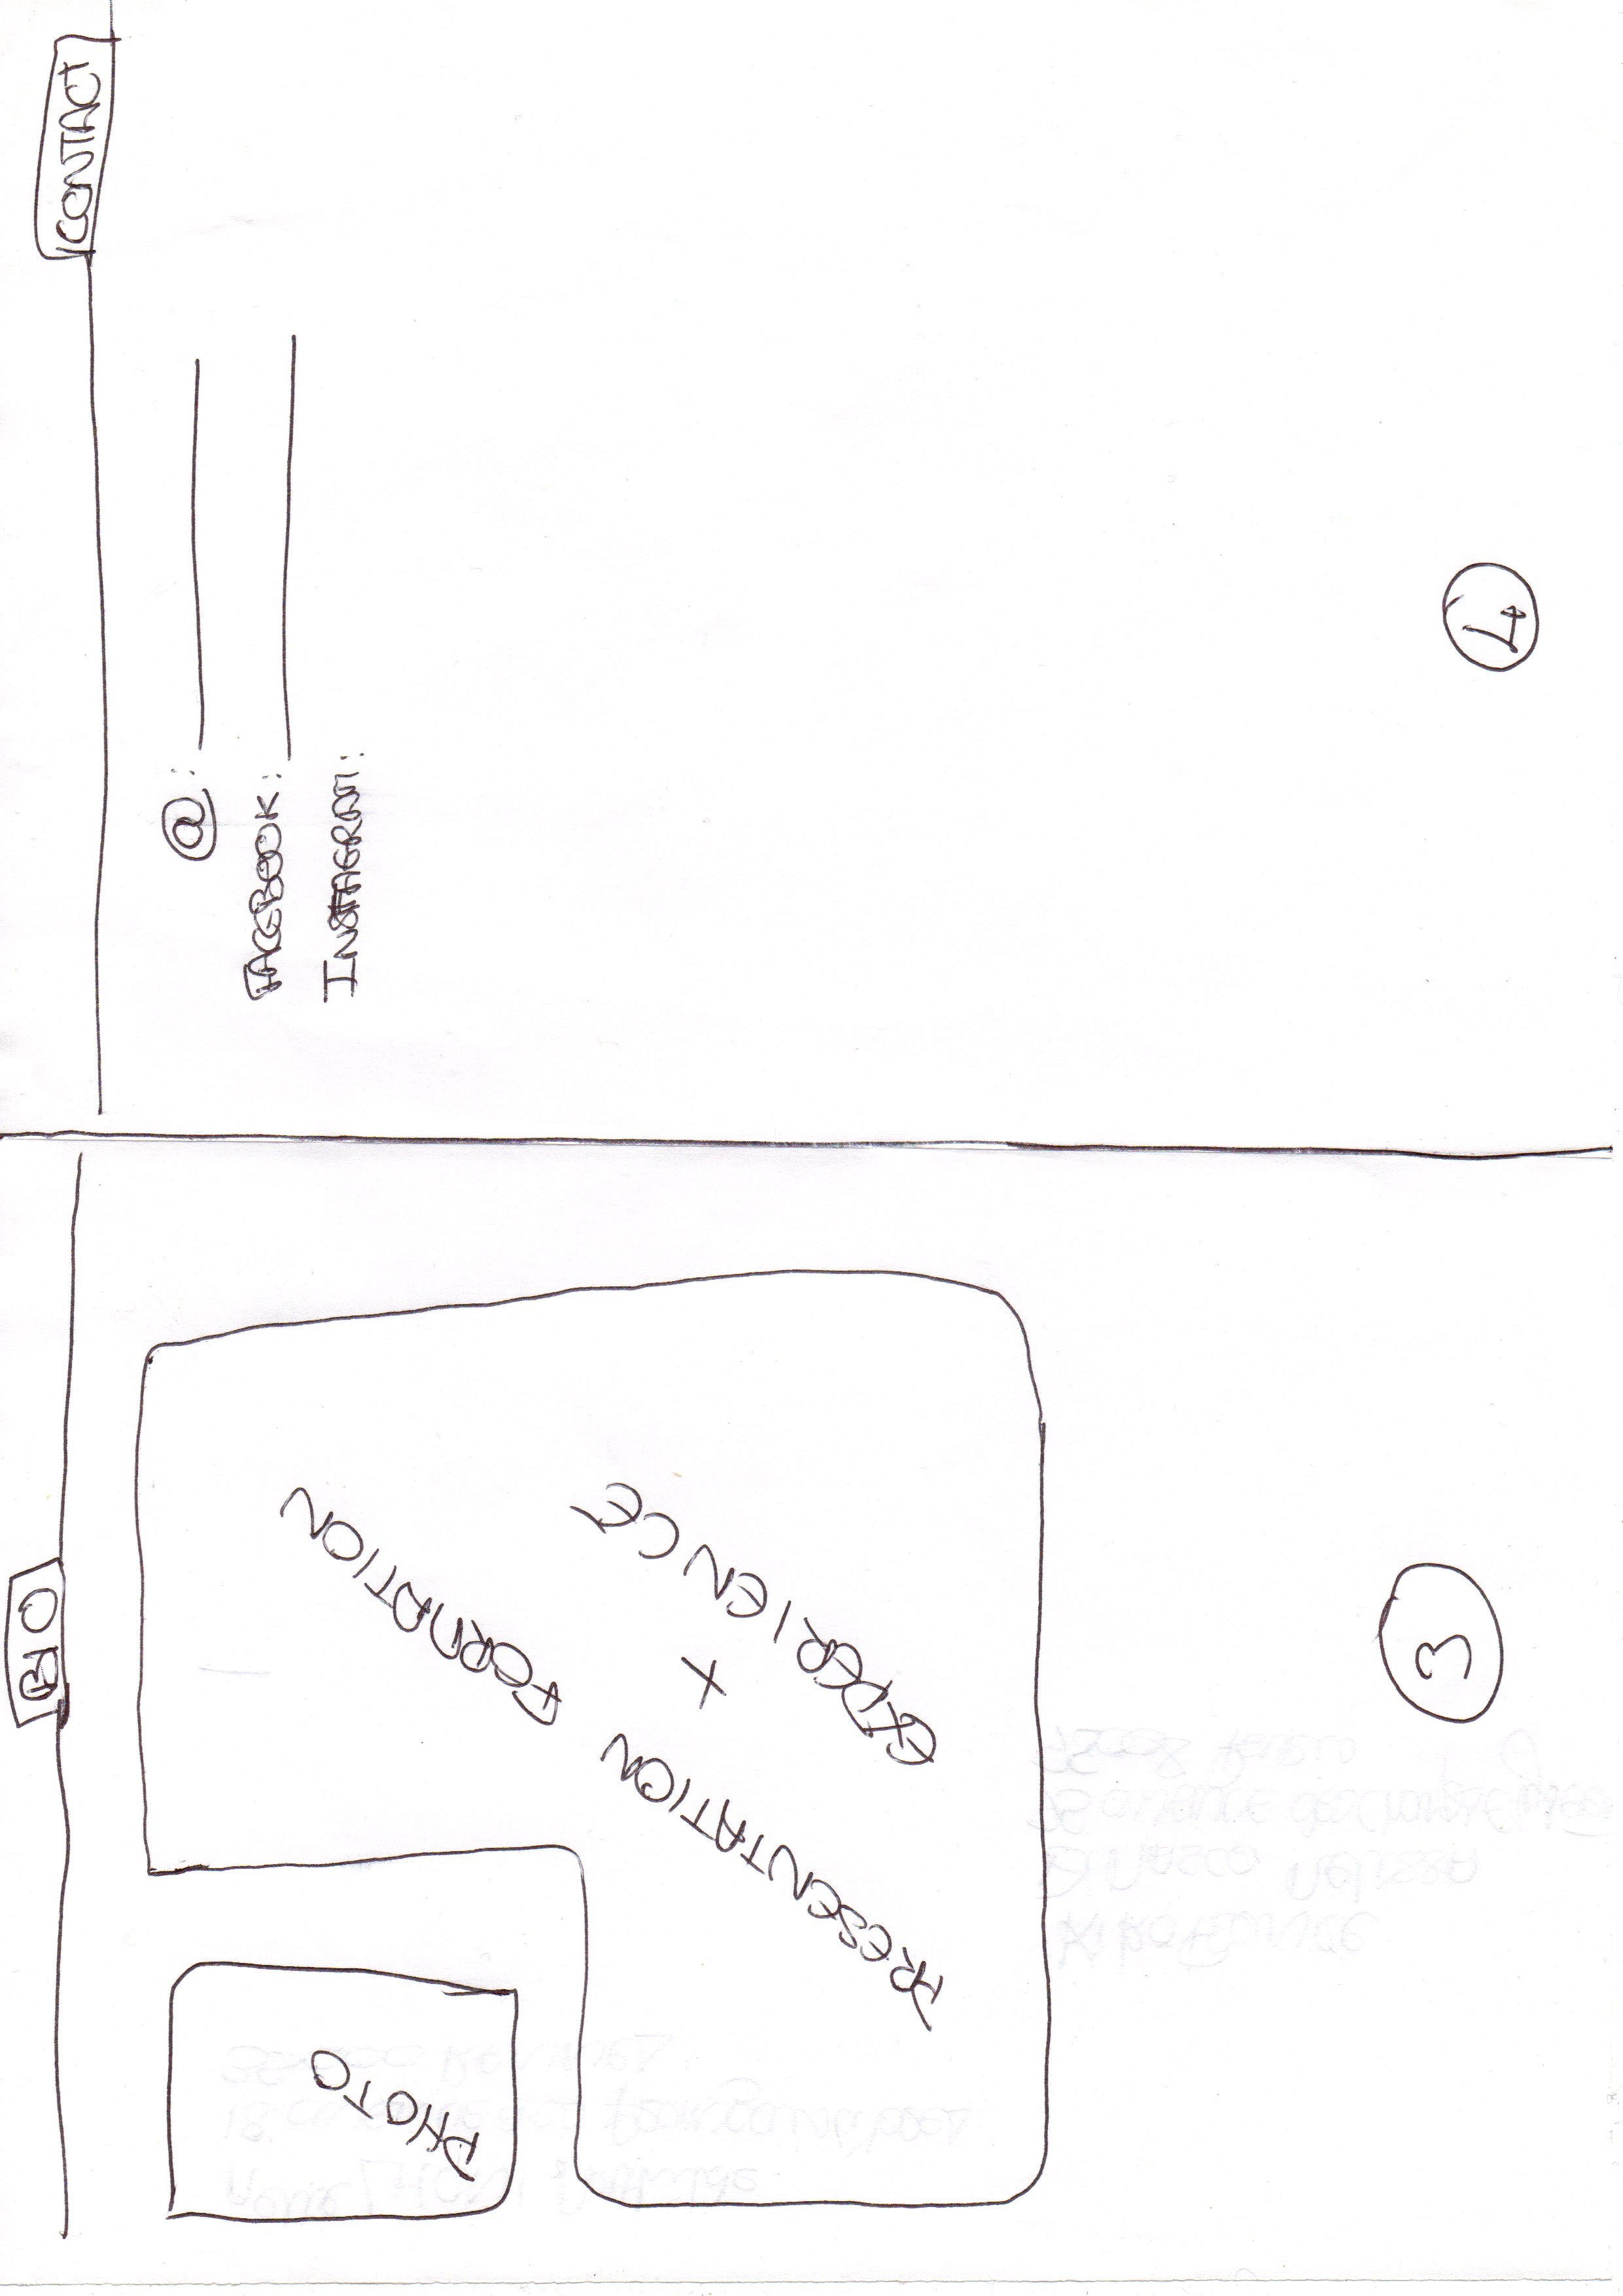 BIO
PHOTO
PRESENTATION FORMATION
+
EXPERIENCE
3
CONTACT
@:
FACEBOOK:
INSTAGRAM:
4